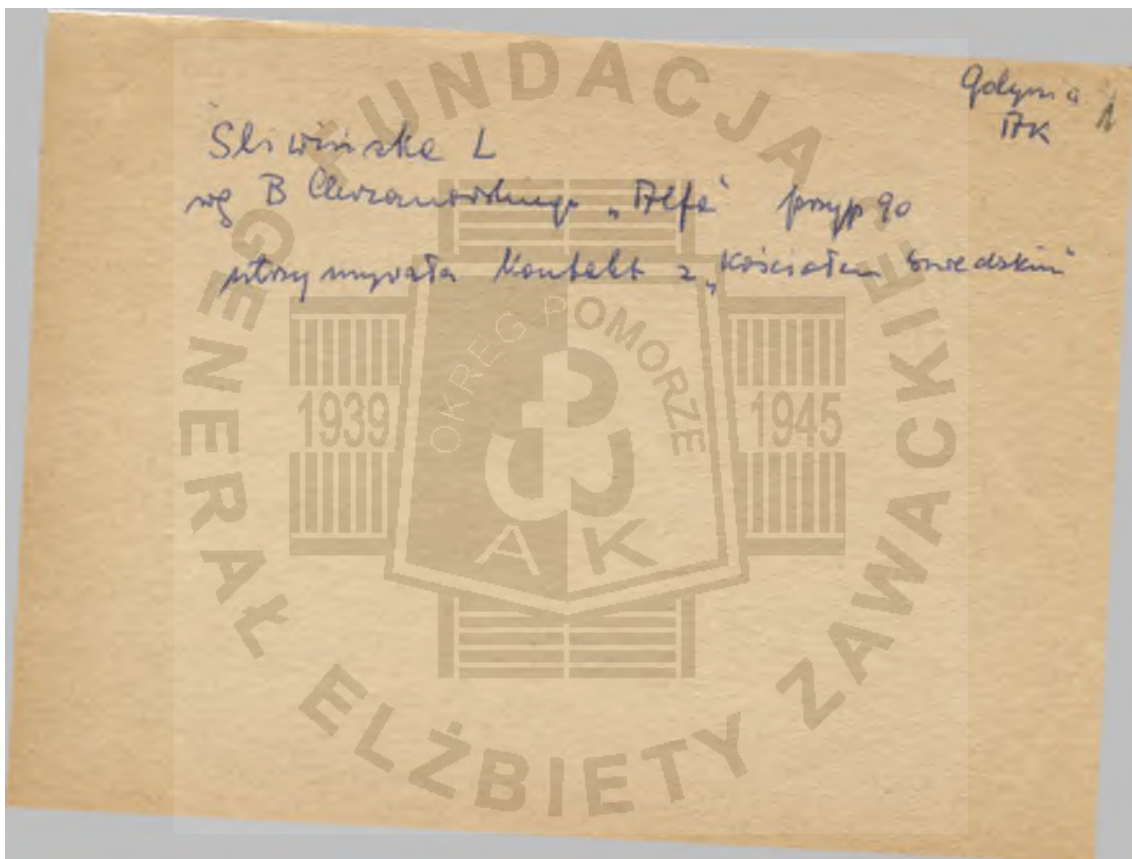 Gdynia 1
AK
Śliwińska L
wg B Chrzanowskiego „Alfa" przyp 90
utrzymywała kontakt z „Kościołem Szwedzkim"
FUNDACJA
GENERAŁ ELŻBIETY ZAWACKIEJ
OKRĘG POMORZE
1939 1945
A K